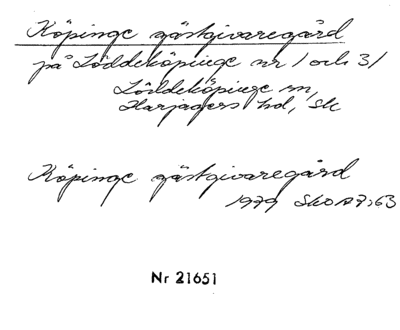 Köpinge gästgivaregård
på Löddeköpinge nr 1 och 31
Löddeköpinge sn,
Harjagers hd, Sk
Köpinge gästgivaregård
1979 SkO A7:63
Nr 21651